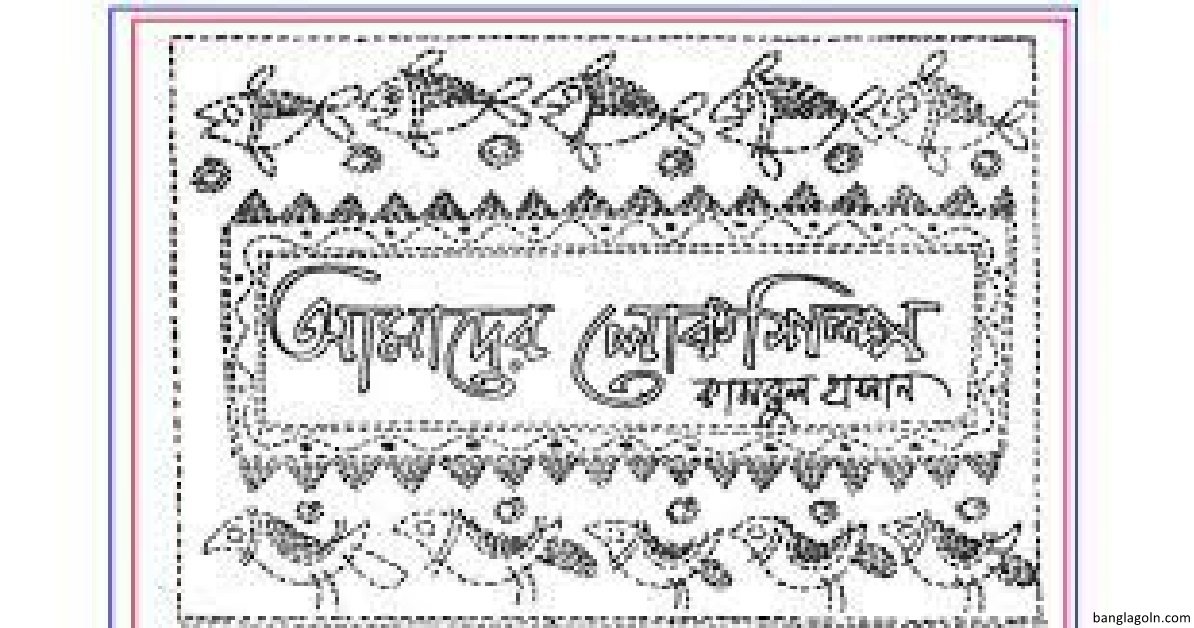 আমাদের লোকশিল্প
কামরুল হাসান
banglagoln.com